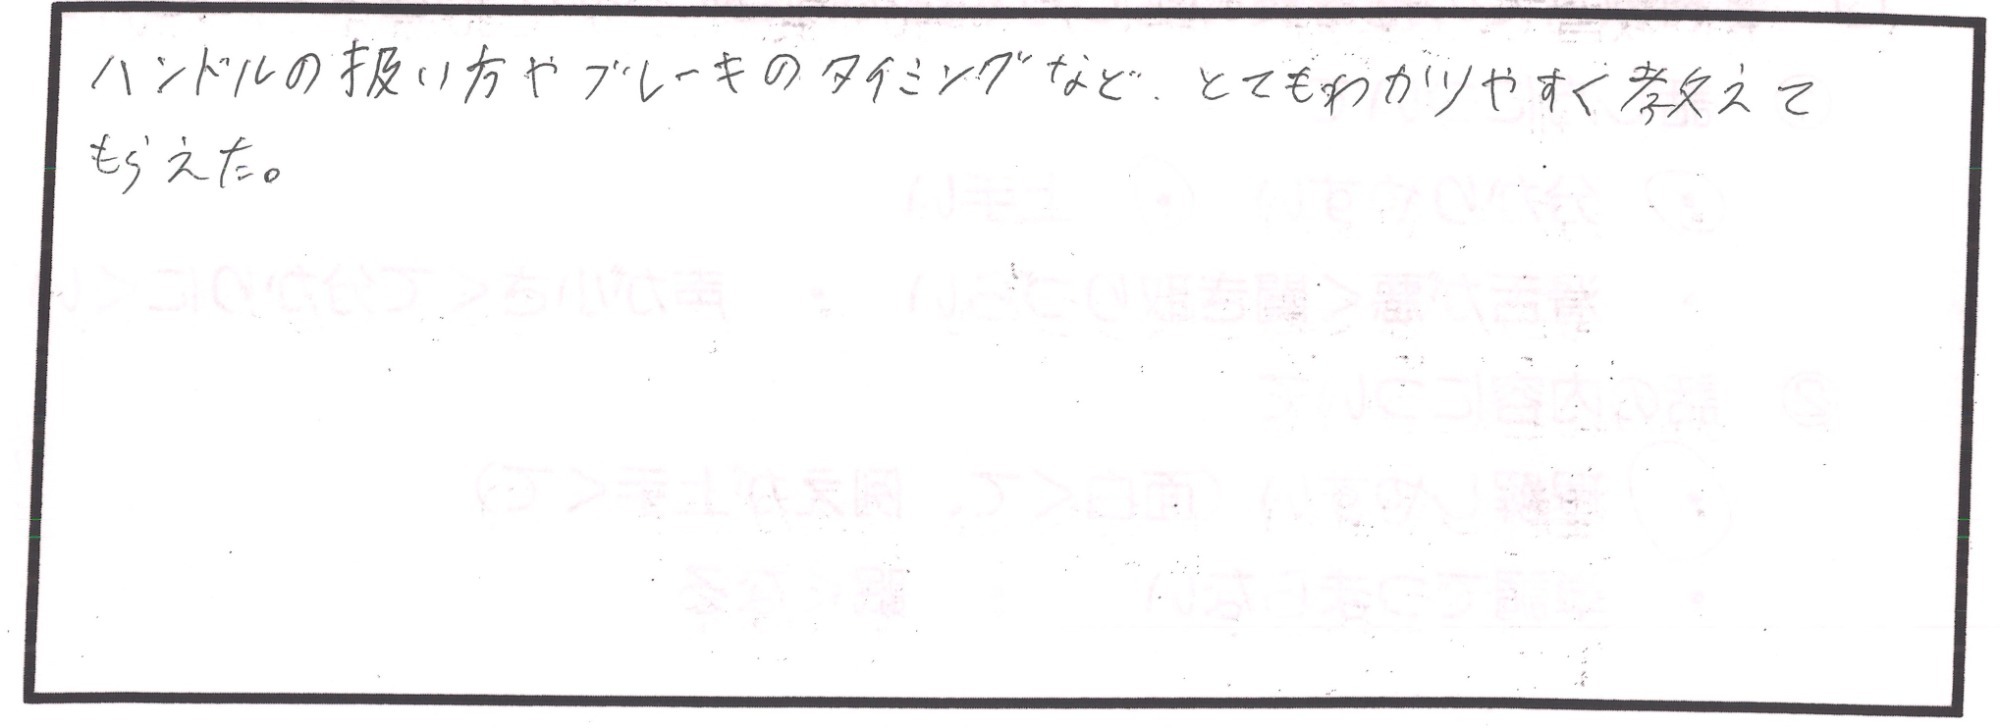 ハンドルの扱い方やブレーキのタイミングなど、とてもわかりやすく教えて
もらえた。